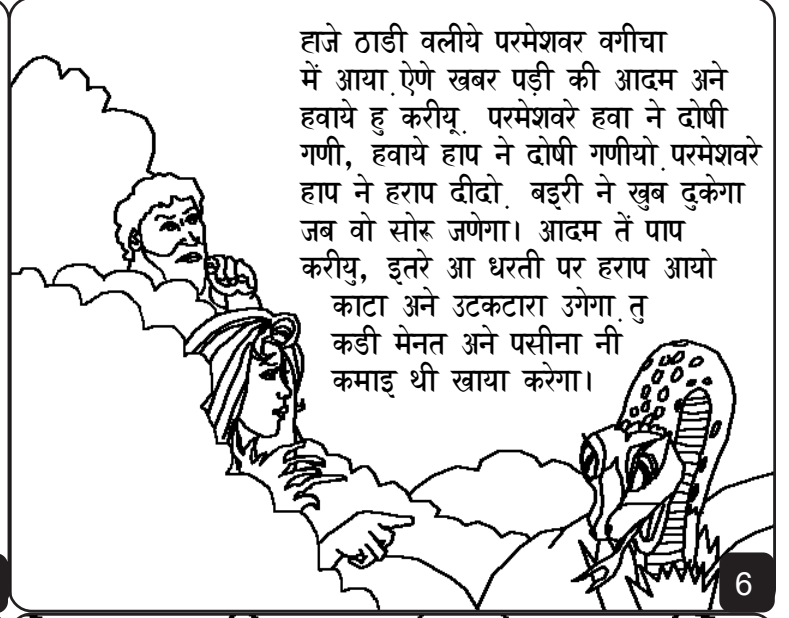 हाजे ठाडी वलीये परमेशवर वगीचा
में आया.ऐणे खबर पड़ी की आदम अने
हवाये हु करीयू. परमेशवरे हवा ने दोषी
गणी, हवाये हाप ने दोषी गणीयो.परमेशवरे
हाप ने हराप दीदो. बइरी ने खुब दुकेगा
जब वो सोरू जणेगा। आदम तें पाप
करीयु, इतरे आ धरती पर हराप आयो
काटा अने उटकटारा उगेगा.तु
कडी मेनत अने पसीना नी
कमाइ थी खाया करेगा।
6